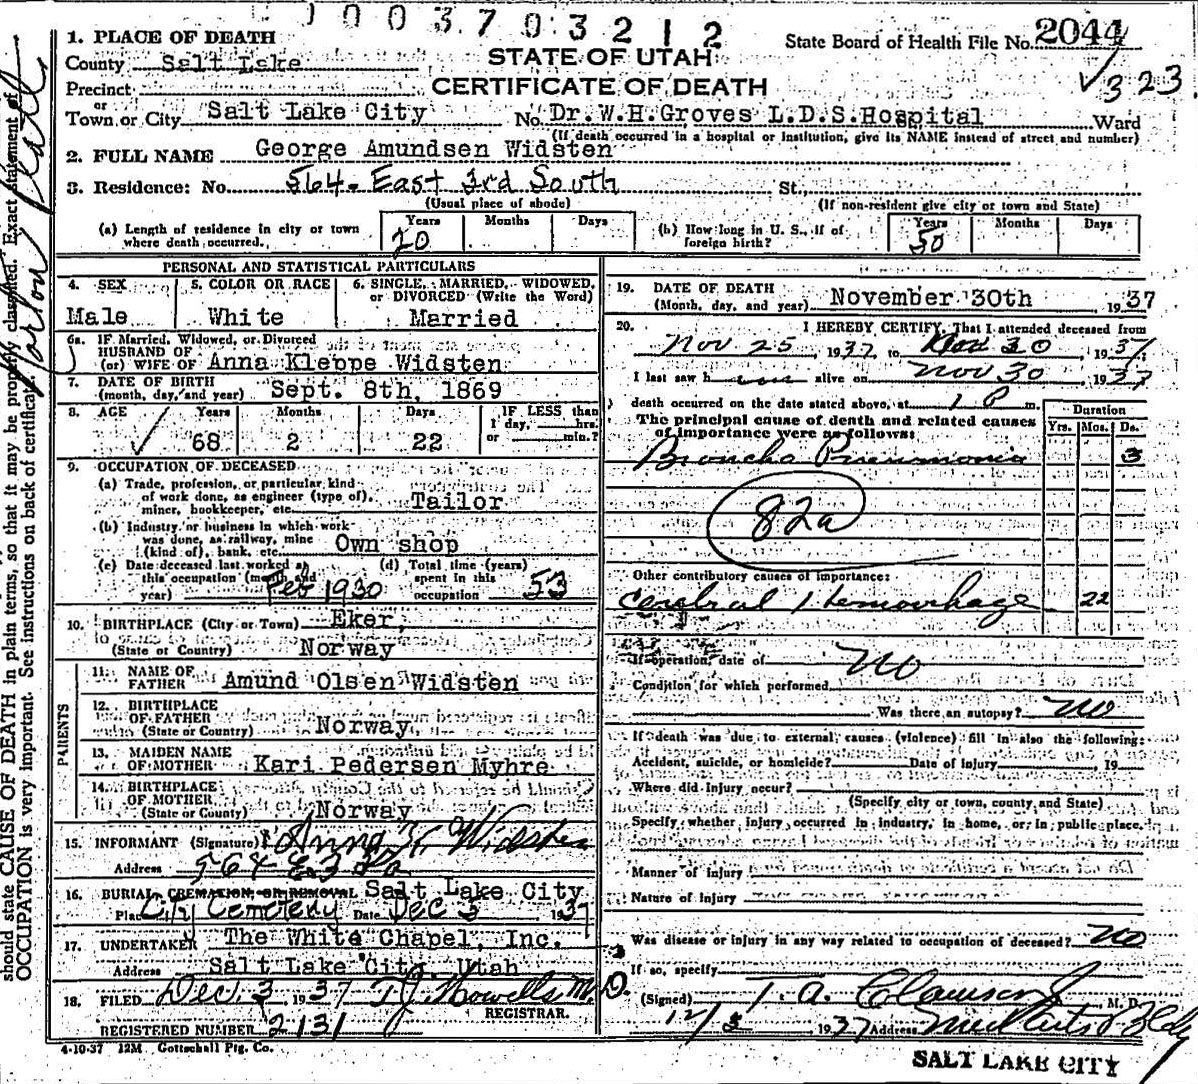 1003703212
1. PLACE OF DEATH
STATE OF UTAH
State Board of Health File No. 2044
County Salt Lake
CERTIFICATE OF DEATH
323
Precinct
or
Town or City Salt Lake City No. Dr. W.H.Groves L.D.S.Hospital Ward
(If death occurred in a hospital or institution, give its NAME instead of street and number)
2. FULL NAME George Amundsen Widsten
3. Residence: No. 564 East 3rd South St.
(Usual place of abode) (If non-resident give city or town and State)
(a) Length of residence in city or town where death occurred. Years 20 Months Days
(b) How long in U. S., if of foreign birth? Years 50 Months Days
PERSONAL AND STATISTICAL PARTICULARS
4. SEX 5. COLOR OR RACE 6. SINGLE, MARRIED, WIDOWED, or DIVORCED (Write the Word)
Male White Married
6a. If Married, Widowed, or Divorced
HUSBAND OF
(or) WIFE OF Anna Kleppe Widsten
7. DATE OF BIRTH
(month, day, and year) Sept. 8th, 1869
8. AGE Years Months Days IF LESS than
1 day, hrs.
68 2 22 or min.?
9. OCCUPATION OF DECEASED
(a) Trade, profession, or particular kind
of work done, as engineer (type of),
miner, bookkeeper, etc. Tailor
(b) Industry or business in which work
was done, as railway, mine
(kind of), bank, etc. Own shop
(c) Date deceased last worked at
this occupation (month and
year) Feb 1930
(d) Total time (years)
spent in this
occupation 53
10. BIRTHPLACE (City or Town) Eker,
(State or Country) Norway
PARENTS
11. NAME OF
FATHER Amund Olsen Widsten
12. BIRTHPLACE
OF FATHER
(State or Country) Norway
13. MAIDEN NAME
OF MOTHER Kari Pedersen Myhre
14. BIRTHPLACE
OF MOTHER
(State or Country) Norway
15. INFORMANT (Signature) Anna K. Widsten
Address 564 E. 3
16. BURIAL, CREMATION OR REMOVAL Salt Lake City
Place City Cemetery Date Dec 3 1937
17. UNDERTAKER The White Chapel, Inc.
Address Salt Lake City, Utah
18. FILED Dec 3, 1937 T J Howells M.D.
REGISTRAR.
REGISTERED NUMBER 2131
4-10-37 12M Gottschall Ptg. Co.
19. DATE OF DEATH
(Month, day, and year) November 30th 1937
20. I HEREBY CERTIFY, That I attended deceased from
Nov 25, 1937, to Nov 30, 1937;
I last saw him alive on Nov 30 1937
death occurred on the date stated above, at 1 P m.
The principal cause of death and related causes
of importance were as follows:
Duration
Yrs. Mos. Ds.
Broncho Pneumonia 3
82a
Other contributory causes of importance:
Cerebral Hemorrhage 22
If operation, date of No
Condition for which performed
Was there an autopsy? No
If death was due to external causes (violence) fill in also the following:
Accident, suicide, or homicide? Date of injury 19
Where did injury occur?
(Specify city or town, county and State)
Specify whether injury occurred in industry, in home, or in public place.
Manner of injury
Nature of injury
Was disease or injury in any way related to occupation of deceased? No
If so, specify
(Signed) T. A. Clawson Jr M. D.
12/3 1937 Address
SALT LAKE CITY
should state CAUSE OF DEATH in plain terms, so that it may be properly classified. Exact statement of
OCCUPATION is very important. See instructions on back of certificate.